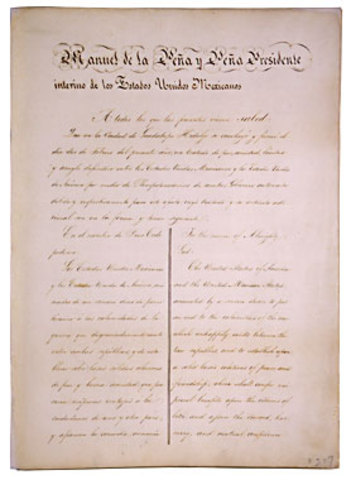 Manuel de la Peña y Peña Presidente
interino de los Estados Unidos Mexicanos
A todos los que las presentes vieren sabed:
Que en la Ciudad de Guadalupe Hidalgo se concluyó y firmó el
dia dos de Febrero del presente año, un tratado de paz, amistad, limites
y arreglo definitivo entre los Estados Unidos Mexicanos y los Estados Unidos
de America por medio de Plenipotenciarios de ambos Gobiernos autorizados
debida y respectivamente para este efecto, cuyo tratado y su articulo adi-
cional son en la forma y tenor siguiente.
En el nombre de Dios Todo-
poderoso.
Los Estados Unidos Mexicanos
y los Estados Unidos de America, ani-
mados de un sincero deseo de poner
término a las calamidades de la
guerra que desgraciadamente existe
entre ambas repúblicas, y de esta-
blecer sobre bases sólidas relaciones
de paz y buena amistad, que pro-
curen reciprocas ventajas a los
ciudadanos de uno y otro pais,
y afianzen la concordia, armonía
In the name of Almighty
God:
The United States of America
and the United Mexican States,
animated by a sincere desire to put
an end to the calamities of the war
which unhappily exists between the
two republics, and to establish upon
a solid basis relations of peace and
friendship, which shall confer reci-
procal benefits upon the citizens of
both, and assure the concord, har-
mony, and mutual confidence